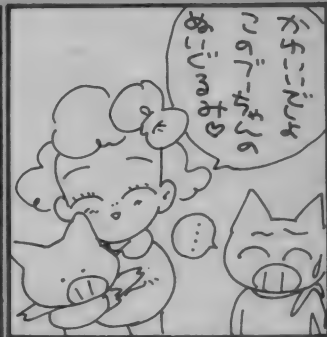 かわいいでしょ
このぶーちゃんの
ぬいぐるみ♡
……